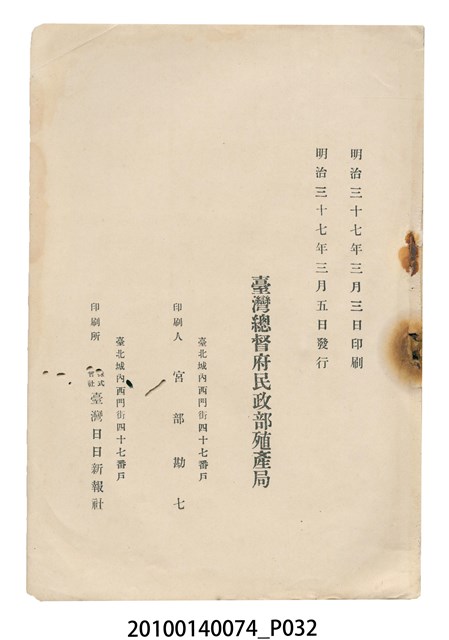 明治三十七年三月三日印刷
明治三十七年三月五日發行
臺灣總督府民政部殖產局
臺北城內西門街四十七番戶
印刷人 宮部勘七
臺北城內西門街四十七番戶
印刷所 株式會社 臺灣日日新報社
20100140074_P032